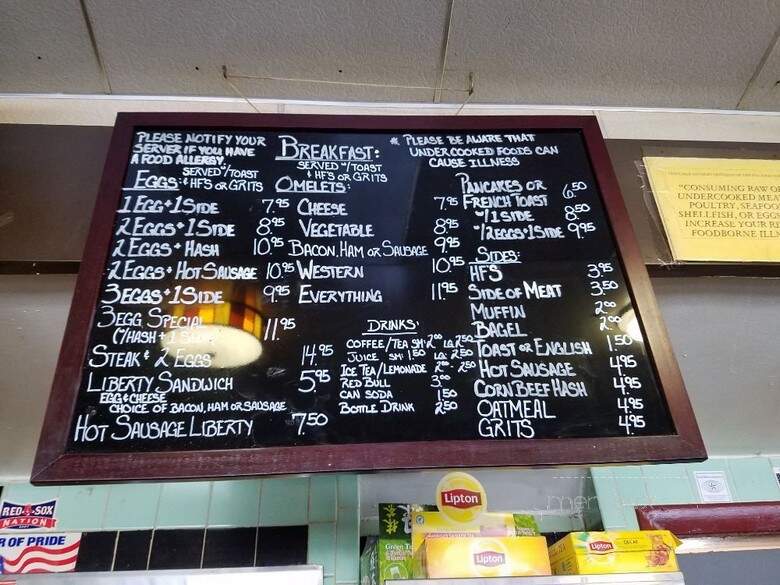 PLEASE NOTIFY YOUR
SERVER IF YOU HAVE
A FOOD ALLERGY.
BREAKFAST:
* PLEASE BE AWARE THAT
UNDERCOOKED FOODS CAN
CAUSE ILLNESS
SERVED W/TOAST
EGGS: & HFS OR GRITS
1 EGG + 1 SIDE 7.95
2 EGGS + 1 SIDE 8.95
2 EGGS + HASH 10.95
2 EGGS + HOT SAUSAGE 10.95
3 EGGS + 1 SIDE 9.95
3 EGG SPECIAL
(W/HASH + 1 SIDE) 11.95
STEAK & 2 EGGS 14.95
LIBERTY SANDWICH 5.95
EGG & CHEESE
CHOICE OF BACON, HAM OR SAUSAGE
HOT SAUSAGE LIBERTY 7.50
SERVED W/TOAST
& HFS OR GRITS
OMELETS:
CHEESE 7.95
VEGETABLE 8.95
BACON, HAM OR SAUSAGE 9.95
WESTERN 10.95
EVERYTHING 11.95
DRINKS:
COFFEE/TEA SM 2.00 LG 2.50
JUICE SM 1.50 LG 2.50
ICE TEA/LEMONADE 2.00 - 2.50
RED BULL 3.00
CAN SODA 1.50
BOTTLE DRINK 2.50
PANCAKES OR
FRENCH TOAST 6.50
W/1 SIDE 8.50
W/2 EGGS + 1 SIDE 9.95
SIDES:
HFS 3.95
SIDE OF MEAT 3.50
MUFFIN 2.00
BAGEL 2.00
TOAST OR ENGLISH 1.50
HOT SAUSAGE 4.95
CORN BEEF HASH 4.95
OATMEAL 4.95
GRITS 4.95
"CONSUMING RAW O
UNDERCOOKED MEA
POULTRY, SEAFOO
SHELLFISH, OR EGG
INCREASE YOUR RI
FOODBORNE ILLN
RED SOX
NATION
R OF PRIDE
Lipton
Green Te
Lipton
Lipton
DECAF